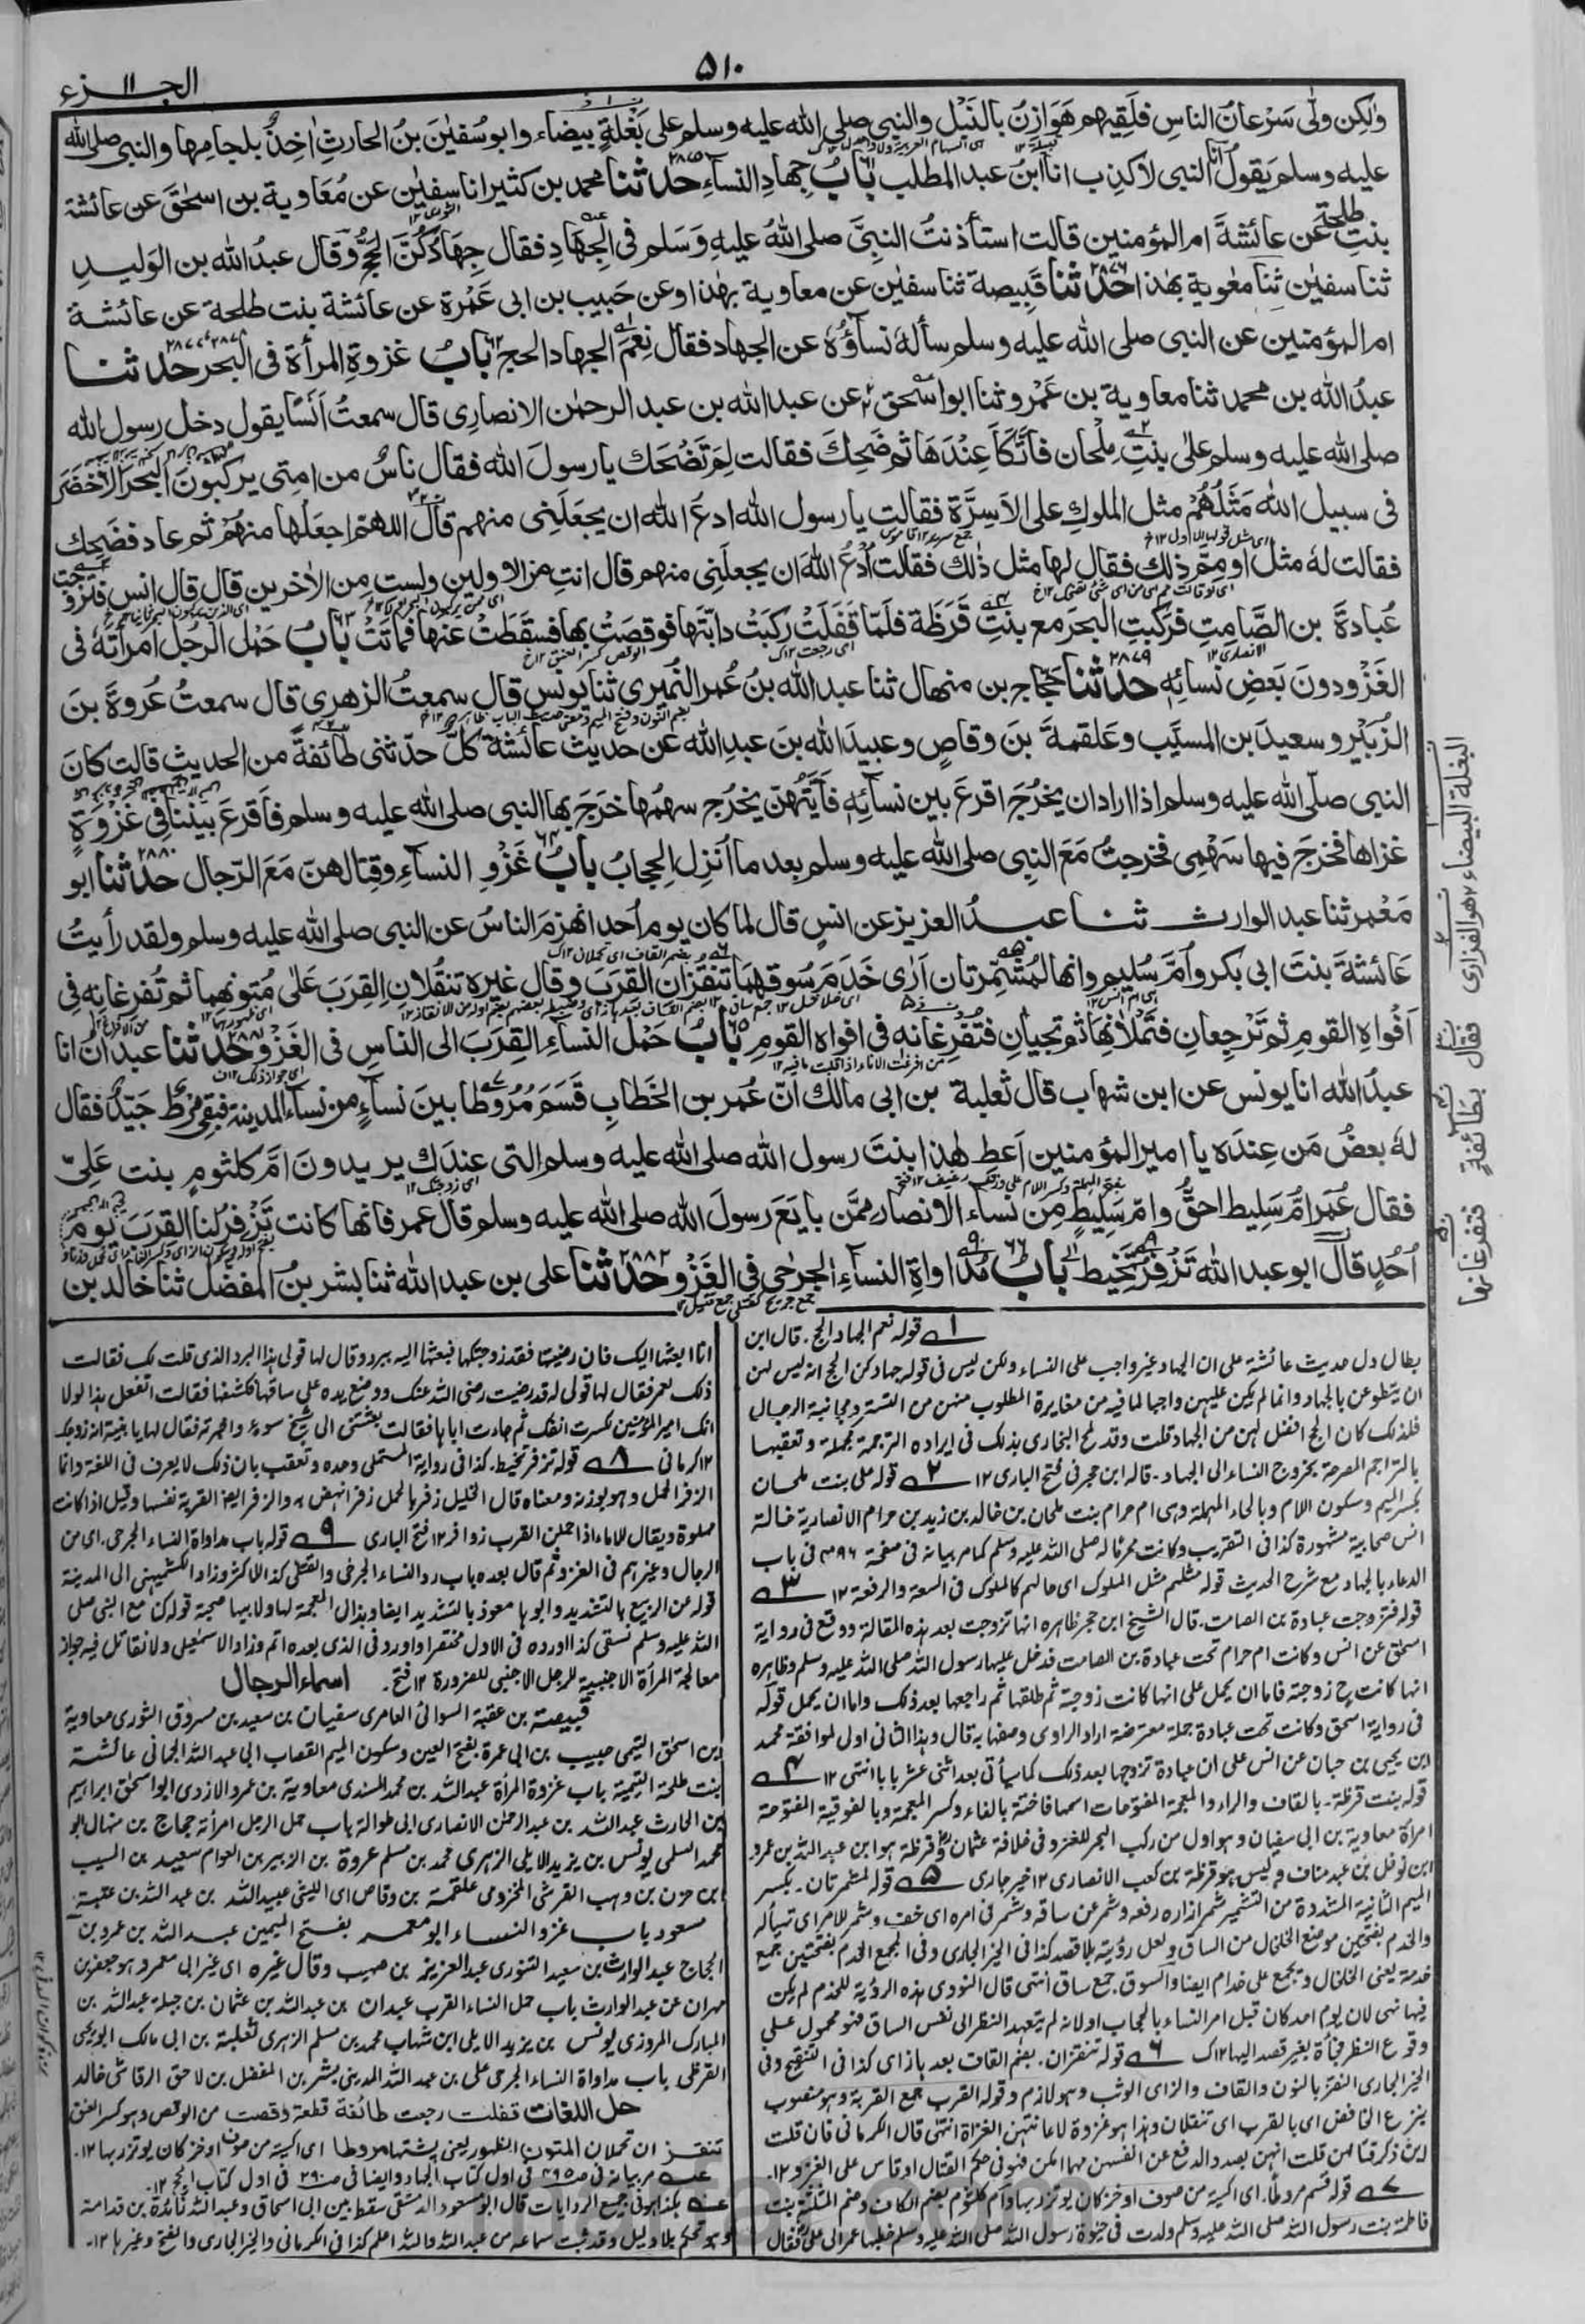 ۵۱۰
الجزء ۱۱
ولكن ولّى سَرْعانُ الناسِ فلَقِيَهم هَوَازِنُ بالنَّبْل والنبي صلى الله عليه وسلم على بَغْلةٍ بيضاء وابوسُفيٰنَ بنُ الحارثِ اٰخِذٌ بلجامها والنبي صلى الله
عليه وسلم يَقولُ انا النبي لاكذِب انا ابنُ عبد المطلب بابُ جِهادِ النساءِ حدثنا محمد بن كثير انا سفيٰن عن مُعَاوية بن اسحٰقَ عن عائشة
بنتِ طلحةَ عن عائشةَ ام المؤمنين قالت استأذنتُ النبيَّ صلى اللهُ عليهِ وَسَلم في الجِهَادِ فقال جِهَادُكُنَّ الحَجُّ وقال عبدُ الله بن الوَليدِ
ثنا سفيٰن ثنا معٰوية بهٰذا حدثنا قَبِيصة ثنا سفيٰن عن معاوية بهٰذا وعن حَبيب بن ابي عَمْرة عن عائشة بنت طلحة عن عائشة
ام المؤمنين عن النبي صلى الله عليه وسلم سألهٗ نساؤُهٗ عن الجهاد فقال نِعْمَ الجهاد الحج بابُ غزوةِ المرأة في البحر حدثنا
عبدُ الله بن محمد ثنا معاوية بن عَمْرو ثنا ابواسحٰق عن عبد الله بن عبد الرحمٰن الانصارِي قال سمعتُ اَنَسًا يقول دخل رسول الله
صلى الله عليه وسلم علٰى بنتِ مِلْحان فاتَّكَأَ عِنْدَهَا ثم ضَحِكَ فقالت لِمَ تَضْحَك يا رسولَ الله فقال ناسٌ من امتي يركبون البحر الاخضر
في سبيل الله مَثَلُهُمْ مثل الملوكِ على الاَسِرَّة فقالت يا رسول الله ادعُ الله ان يجعَلَني منهم قال اللهم اجعَلْها منهُمْ ثم عاد فضَحِك
فقالت لهٗ مثل اومِمَّ ذلك فقال لها مثل ذٰلك فقالت اُدْعُ اللهَ ان يجعلَنِي منهم قال انتِ من الاولين ولستِ مِن الاٰخرين قال قال انس فتزوجت
عُبادةَ بن الصَّامِتِ فركبتِ البحرَ مع بنتِ قَرَظَة فلَمّا قَفَلَتْ ركبَتْ دابّتَها فوقصَتْ بها فسقَطَتْ عنها فماتَتْ بابُ حَمْلِ الرجُلِ امرأتَهٗ في
الغَزْو دونَ بَعضِ نسائِهٖ حدثنا حجّاج بن منهال ثنا عبد الله بنُ عُمر النُّمَيري ثنا يونس قال سمعتُ الزهري قال سمعتُ عُروةَ بنَ
الزُّبَيْر وسعيدَ بن المسيَّب وعَلقمةَ بنَ وقاصٍ وعبيدَ الله بنَ عبدِ الله عن حديث عائشةَ كلٌّ حدّثنى طائفةً من الحديث قالت كانَ
النبي صلى الله عليه وسلم اذا اراد ان يخرُجَ اقرعَ بين نسائِهٖ فاَيَّتُهُنّ يخرُج سهمُها خَرَجَ بها النبي صلى الله عليه وسلم فاَقرعَ بينَنا في غَزْوَةٍ
غزاها فخرَجَ فيها سَهْمِي فخرجتُ مَعَ النبي صلى الله عليه وسلم بعد ما اُنزل الحِجابُ بابُ غَزْوِ النساءِ وقِتالِهنّ مَعَ الرّجال حدثنا ابو
مَعْمر ثنا عبد الوارث ثنا عبدُ العزيز عن انسٍ قال لما كان يوم اُحد انهزمَ الناسُ عن النبي صلى الله عليه وسلم ولقد رأيتُ
عائشةَ بنتَ ابي بكر واُمَّ سُليم وانهما لمُشَمِّرتان اَرٰى خَدَمَ سُوقهما تَنقُزان القِرَبَ وقال غيره تنقُلانِ القِرَبَ عَلٰى مُتونهما ثم تُفرِغانِه في
اَفْواهِ القومِ ثم تَرْجِعانِ فتَمْلَاٰنِها ثم تجيئانِ فتُفرِغانه في افواه القومِ بابُ حَمْلِ النساءِ القِرَبَ الى الناسِ في الغَزْو حدثنا عبدان انا
عبدُ الله انا يونس عن ابن شهاب قال ثعلبة بن ابي مالك انّ عُمر بن الخَطابِ قَسَمَ مُرُوطا بينَ نساءٍ من نساء المدينة فبقِيَ مِرْطٌ جَيّدٌ فقال
لهٗ بعضُ مَن عِندَه يا امير المؤمنين اَعطِ هٰذا ابنتَ رسول الله صلى الله عليه وسلم التي عندَك يريدونَ امَّ كلثومٍ بنت عَلِيّ
فقال عُمَر اُمُّ سَلِيط احقُّ وامّ سَلِيطٍ مِن نساء الانصار ممَّن بايَعَ رسولَ الله صلى الله عليه وسلم قال عمر فانها كانت تَزْفِرُ لنا القِرَبَ يوم
اُحُدٍ قال ابو عبد الله تَزْفِرُ تَخِيط بابُ مُداواةِ النساءِ الجرحٰى في الغَزْو حدثنا علي بن عبد الله ثنا بشر بنُ المفضل ثنا خالد بن
البغلة البيضاء
هو الفزاري
فقال
بطائفة
فتفرغانها
قوله نعم الجهاد الحج. قال ابن
بطال دل حديث عائشة على ان الجهاد غير واجب على النساء ولكن ليس في قوله جهادكن الحج انه ليس لهن
ان يتطوعن بالجهاد وانما لم يكن عليهن واجبا لما فيه من مغايرة المطلوب منهن من التستر ومجانبة الرجال
فلذلك كان الحج افضل لهن من الجهاد قلت وقد لمح البخاري بذلك في ايراده الترجمة مجملة وتعقبها
بالتراجم المصرحة بخروج النساء الى الجهاد. قاله ابن حجر في فتح الباري ۱۲ ۲ قوله على بنت ملحان
بكسر الميم وسكون اللام وبالحاء المهملة وهي ام حرام بنت ملحان بن خالد بن زيد بن حرام الانصارية خالة
انس صحابية مشهورة كذا في التقريب وكانت محرما له صلى الله عليه وسلم كما مر بيانه في صفحة في باب
الدعاء بالجهاد مع شرح الحديث قوله مثلهم مثل الملوك اي حالهم كالملوك في السعة والرفعة ۱۲ ۳
قوله فتزوجت عبادة بن الصامت. قال الشيخ ابن حجر ظاهره انها تزوجت بعد هذه المقالة ووقع في رواية
اسحق عن انس وكانت ام حرام تحت عبادة بن الصامت فدخل عليها رسول الله صلى الله عليه وسلم وظاهره
انها كانت ح زوجته فاما ان يحمل على انها كانت زوجته ثم طلقها ثم راجعها بعد ذلك واما ان يحمل قوله
في رواية اسحق وكانت تحت عبادة جملة معترضة اراد الراوي وصفها به قال وهذا الثاني اولى لموافقة محمد
ابن يحيى بن حبان عن انس على ان عبادة تزوجها بعد ذلك كما سيأتي بعد اثني عشر بابا انتهى ۱۲ ۴
قوله بنت قرظة. بالقاف والراء والمعجمة المفتوحات اسمها فاختة بالفاء وكسر المعجمة وبالفوقية المفتوحة
امرأة معاوية بن ابي سفيان وهو اول من ركب البحر للغزو في خلافة عثمان وقرظة هو ابن عبد الله بن عمرو
ابن نوفل بن عبد مناف وليس هو قرظة بن كعب الانصاري ۱۲ خير جاري ۵ قوله لمشمرتان. بكسر
الميم الثانية المشددة من التشمير شمر ازاره رفعه وشمر عن ساقه وشمر في امره اي خف وشمر للامر اي تهيأ له
والخدم بفتحتين موضع الخلخال من الساق ولعل رؤيته بلا قصد كذا في الخير الجاري وفي المجمع الخدم بفتحتين جمع
خدمة يعني الخلخال ويجمع على خدام ايضا والسوق جمع ساق انتهى قال النووي هذه الرؤية للخدم لم يكن
فيها نهى لان يوم احد كان قبل امر النساء بالحجاب او لانه لم يتعمد النظر الى نفس الساق فهو محمول على
وقوع النظر فجأة بغير قصد اليها ۱۲ك ۶ قوله تنقزان. بضم القاف بعدها زاي كذا في التنقيح وفي
الخير الجاري النقز بالنون والقاف والزاي الوثب وهو لازم وقوله القرب جمع القربة وهو منصوب
بنزع الخافض اي بالقرب اي تنقلان وهذا هو غزوة لاعانتهن الغزاة انتهى قال الكرماني فان قلت
اين ذكر قتالهن قلت انهن بصدد الدفع عن انفسهن مهما امكن فهو في حكم القتال او قاس على الغزو ۱۲.
۷ قوله قسم مروطا. اي اكسية من صوف او خز كان يوتزر بها وام كلثوم بضم الكاف وضم المثلثة بنت
فاطمة بنت رسول الله صلى الله عليه وسلم ولدت في حيوة رسول الله صلى الله عليه وسلم خطبها عمر الى علي فقال
انا ابعثها اليك فان رضيتها فقد زوجتكها فبعثها اليه ببرد وقال لها قولي هذا البرد الذي قلت لك فقالت
ذلك لعمر فقال لها قولي له قد رضيت رضي الله عنك ووضع يده على ساقها فكشفها فقالت اتفعل هذا لولا
انك امير المؤمنين لكسرت انفك ثم جاءت اباها فقالت بعثتني الى شيخ سوء واخبرته فقال لها يا بنية انه زوجك
۱۲ كرماني ۸ قوله تزفر تخيط. كذا في رواية المستملي وحده وتعقب بان ذلك لا يعرف في اللغة وانما
الزفر الحمل وهو بوزنه ومعناه قال الخليل زفر بالحمل زفرا نهض به والزفر ايضا القربة نفسها وقيل اذا كانت
مملوة ويقال للاماء اذا حملن القرب زوافر ۱۲ فتح الباري ۹ قوله باب مداواة النساء الجرحى. اي من
الرجال وغيرهم في الغزو ثم قال بعده باب رد النساء الجرحى والقتلى كذا للاكثر وزاد الكشميهني الى المدينة
قوله عن الربيع بالتشديد وابوها معوذ بالتشديد ايضا وبذال المعجمة لها ولابيها صحبة قوله كنا مع النبي صلى
الله عليه وسلم نسقي كذا اورده في الاول مختصرا واورد في الذي بعده اتم وزاد الاسمعيلي ولا نقاتل فيه جواز
معالجة المرأة الاجنبية للرجل الاجنبي للضرورة ۱۲ فتح. اسماء الرجال
قبيصة بن عقبة السوائي العامري سفيان بن سعيد بن مسروق الثوري معاوية
بن اسحق التيمي حبيب بن ابي عمرة بفتح العين وسكون الميم القصاب ابي عبد الله الحماني عائشة
بنت طلحة التيمية باب غزوة المرأة عبد الله بن محمد المسندي معاوية بن عمرو الازدي ابو اسحق ابراهيم
بن الحارث عبد الله بن عبد الرحمن الانصاري ابي طوالة باب حمل الرجل امرأته حجاج بن منهال ابو
محمد السلمي يونس بن يزيد الايلي الزهري محمد بن مسلم عروة بن الزبير بن العوام سعيد بن المسيب
ابن حزن بن وهب القرشي المخزومي علقمة بن وقاص اي الليثي عبيد الله بن عبد الله بن عتبة
مسعود باب غزو النساء ابو معمر بفتح الميمين عبد الله بن عمرو بن
الحجاج عبد الوارث بن سعيد التنوري عبد العزيز بن صهيب وقال غيره اي غير ابي معمر وهو جعفر بن
مهران عن عبد الوارث باب حمل النساء القرب عبدان بن عبد الله بن عثمان بن جبلة عبد الله بن
المبارك المروزي يونس بن يزيد الايلي ابن شهاب محمد بن مسلم الزهري ثعلبة بن ابي مالك ابو يحيى
القرظي باب مداواة النساء الجرحى علي بن عبد الله المديني بشر بن المفضل بن لاحق الرقاشي خالد
حل اللغات قفلت رجعت طائفة قطعة وقصت من الوقص وهو كسر العنق
تنقز ان تحملان المتون الظهور يعني پشتها مروطا اي اكسية من صوف او خز كان يوتزر بها ۱۲.
عه مر بيانه في ص في اول كتاب الجهاد وايضا في ص ۲۹۰ في اول كتاب الحج ۱۲.
عه هكذا هو في جميع الروايات قال ابو مسعود الدمشقي سقط بين ابي اسحاق وعبد الله زائدة بن قدامة
وهو تحكم بلا دليل وقد ثبت سماعه من عبد الله والله اعلم كذا في الكرماني والخير الجاري والفتح وغيرها ۱۲.